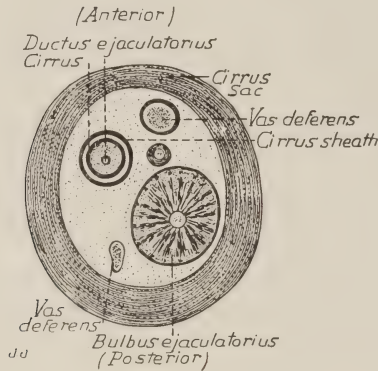 (Anterior)
Ductus ejaculatorius
Cirrus
Cirrus
Sac
Vas deferens
Cirrus sheath
Vas
deferens
Bulbus ejaculatorius
(Posterior)
JJ